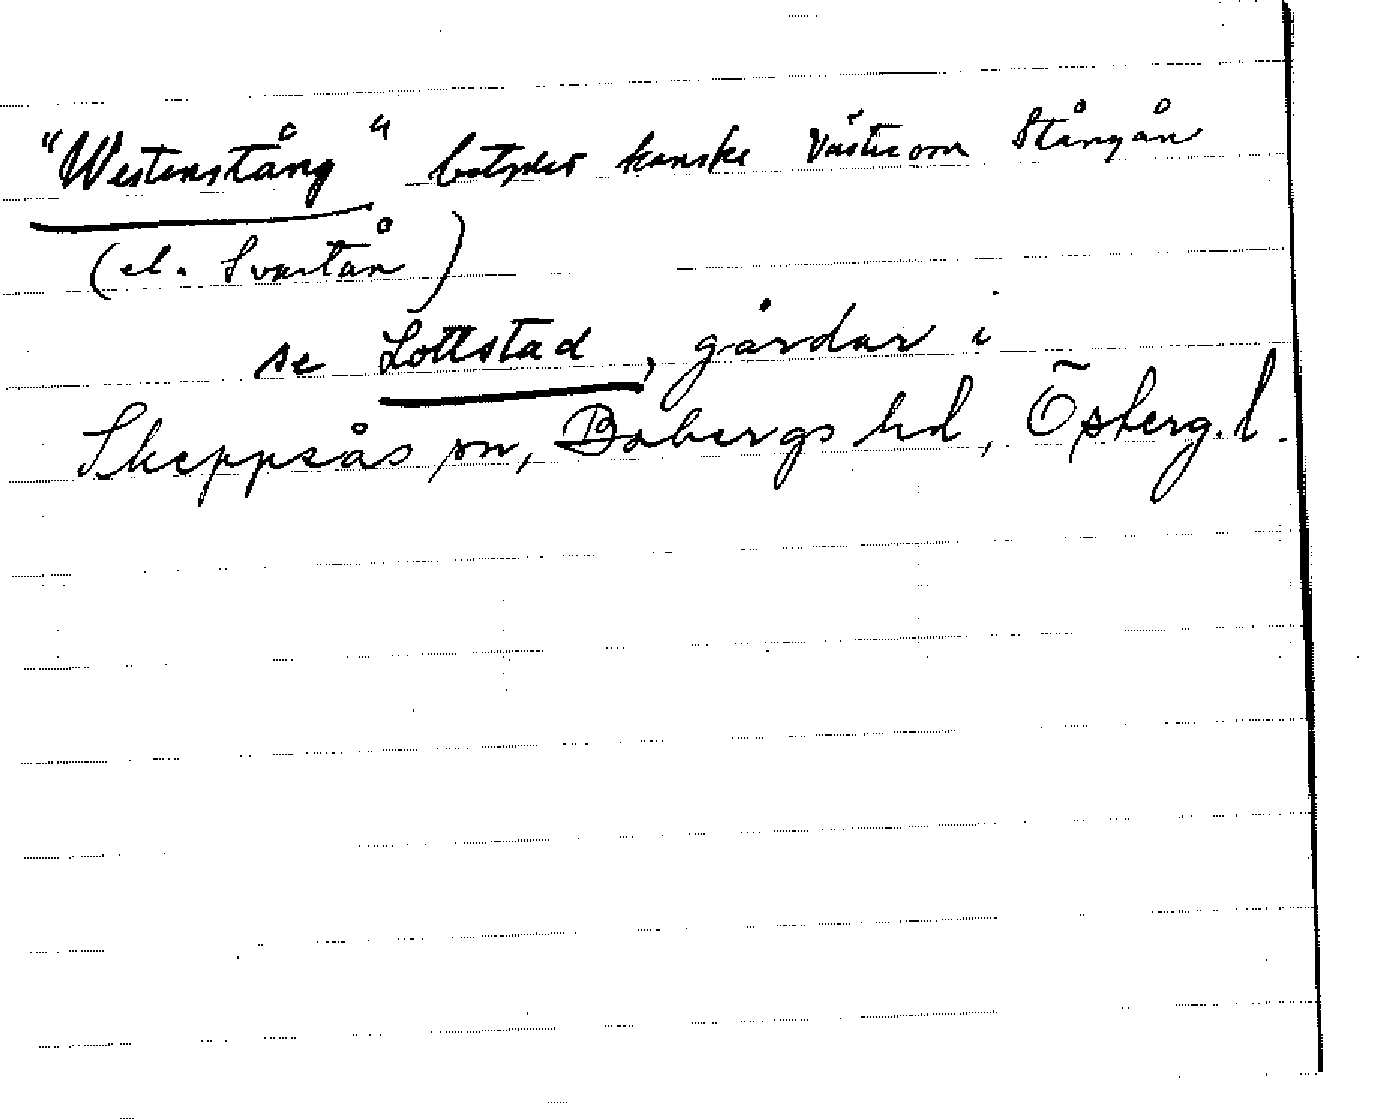 "Westenstång" betyder kanske Väster om Stångån
(el. Svartån)
se Lottstad, gårdar i
Skeppsås sn, Bobergs hd, Österg. l.